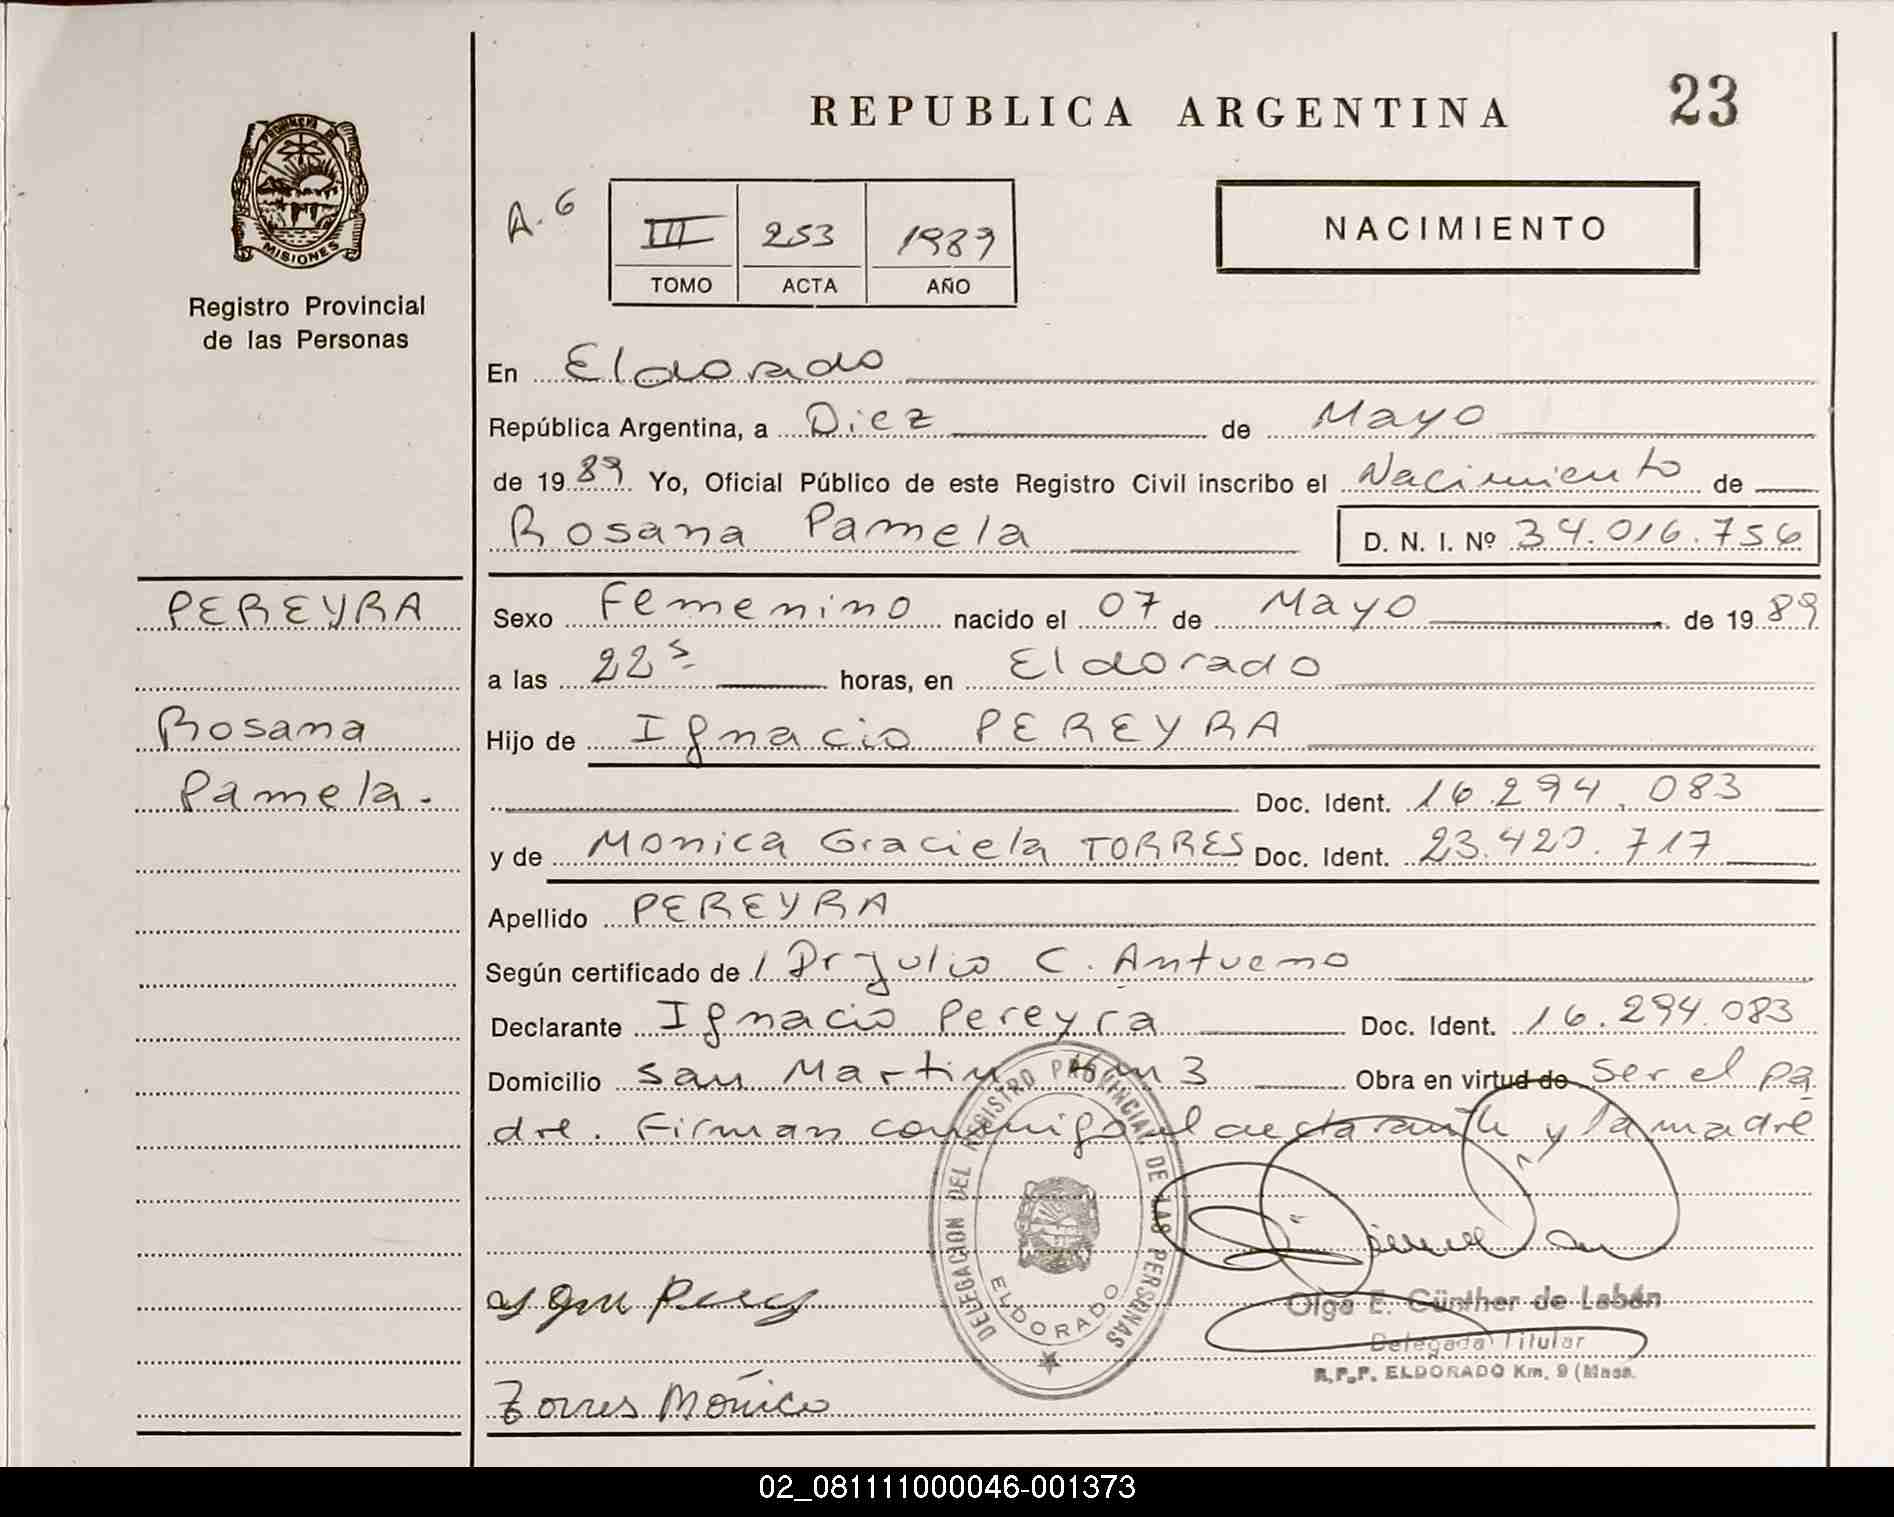 REPUBLICA ARGENTINA
23
PROVINCIA DE MISIONES
Registro Provincial
de las Personas
A. 6
III 253 1989
TOMO ACTA AÑO
NACIMIENTO
En Eldorado
República Argentina, a Diez de Mayo
de 1989 Yo, Oficial Público de este Registro Civil inscribo el Nacimiento de
Rosana Pamela D. N. I. Nº 34.016.756
PEREYRA
Rosana
Pamela.
Sexo Femenino nacido el 07 de Mayo de 1989
a las 22 s horas, en Eldorado
Hijo de Ignacio PEREYRA
Doc. Ident. 16.294.083
y de Monica Graciela TORRES Doc. Ident. 23.420.717
Apellido PEREYRA
Según certificado de / Dr Julio C. Antueno
Declarante Ignacio Pereyra Doc. Ident. 16.294.083
Domicilio San Martin Km 3 Obra en virtud de ser el pa
dre. Firman conmigo el declarante y la madre
DELEGACION DEL REGISTRO PROVINCIAL DE LAS PERSONAS
ELDORADO
Olga E. Günther de Labán
Delegada Titular
R.P.P. ELDORADO Km. 9 (Mnes.
Torres Mónica
02_081111000046-001373